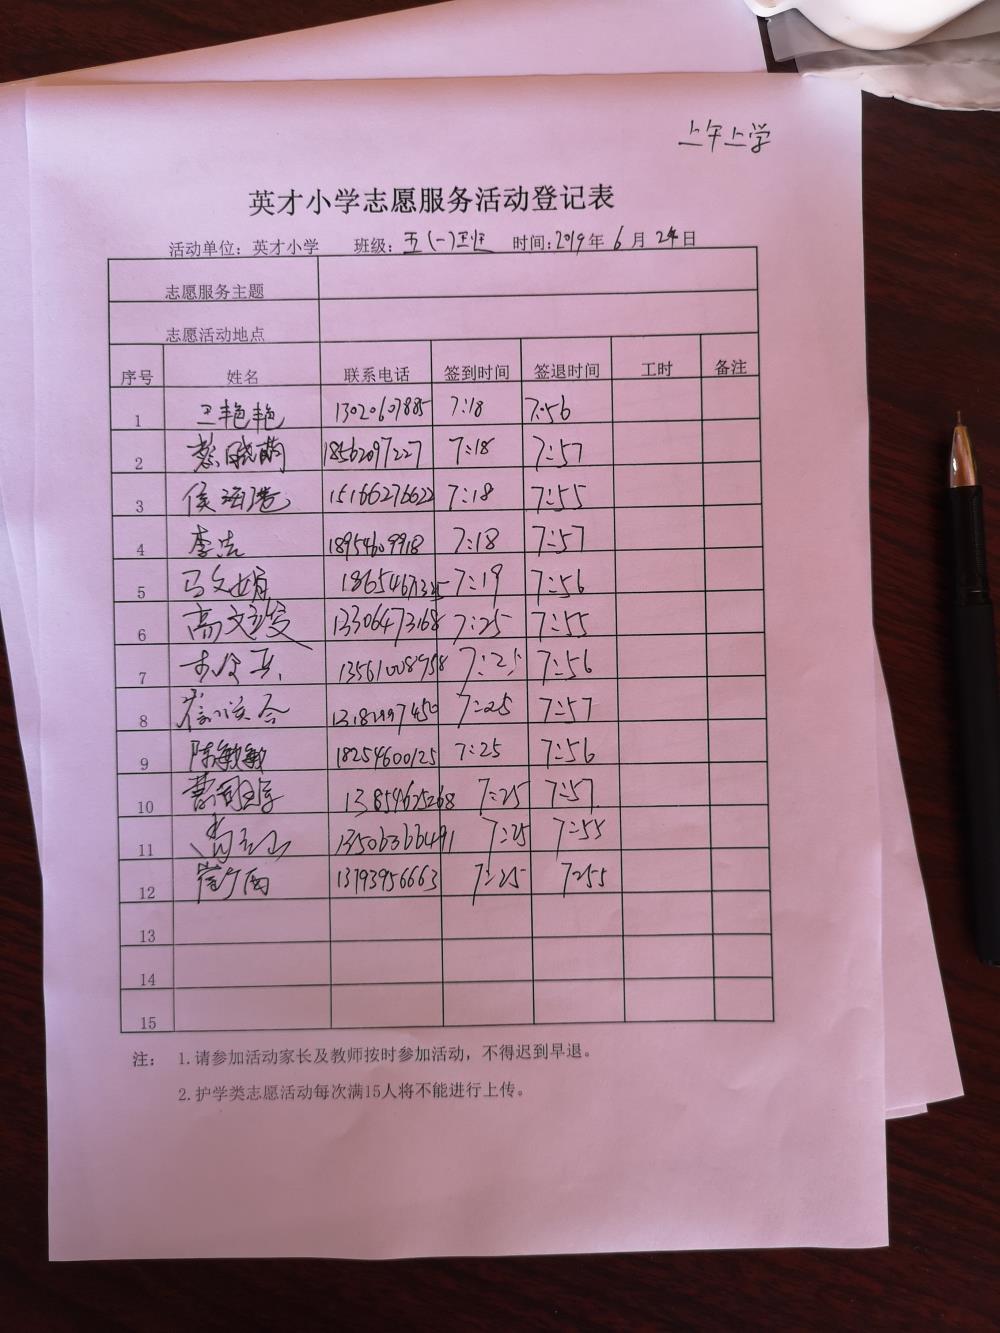 上午上学
英才小学志愿服务活动登记表
活动单位：英才小学 班级：五(一)班 时间：2019年6月24日
志愿服务主题
志愿活动地点
序号 姓名 联系电话 签到时间 签退时间 工时 备注
1 王艳艳 13020607885 7:18 7:56
2 蔡晓萌 18562097227 7:18 7:57
3 侯海港 15166276622 7:18 7:55
4 李浩 18954609918 7:18 7:57
5 马文娟 7:19 7:56
6 高文俊 13306473168 7:25 7:55
7 13561008958 7:25 7:56
8 7:25 7:57
9 陈敏敏 18254600125 7:25 7:56
10 13854625268 7:25 7:57
11 13506366491 7:25 7:55
12 13793956663 7:25 7:55
13
14
15
注： 1.请参加活动家长及教师按时参加活动，不得迟到早退。
2.护学类志愿活动每次满15人将不能进行上传。